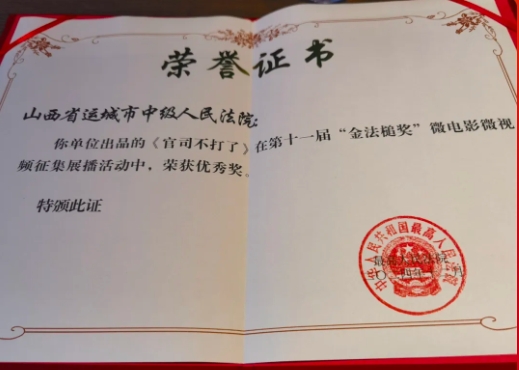 荣誉证书
山西省运城市中级人民法院:
你单位出品的《官司不打了》在第十一届“金法槌奖”微电影微视
频征集展播活动中，荣获优秀奖。
特颁此证
中华人民共和国最高人民法院